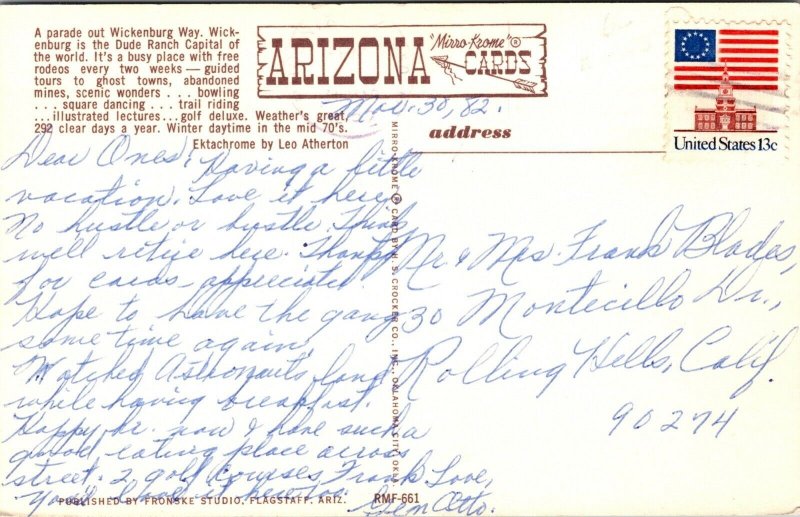 A parade out Wickenburg Way. Wick-
enburg is the Dude Ranch Capital of
the world. It's a busy place with free
rodeos every two weeks — guided
tours to ghost towns, abandoned
mines, scenic wonders . . . bowling
. . . square dancing . . . trail riding
. . . illustrated lectures...golf deluxe. Weather's great,
292 clear days a year. Winter daytime in the mid 70's.
Ektachrome by Leo Atherton
ARIZONA "Mirro-Krome"® CARDS
United States 13c
Nov. 30, 82.
address
Dear Ones: Having a little
vacation. Love it here.
No hustle or bustle. Think
we'll retire here. Thanks
for cards - appreciate!
Hope to have the gang
some time again.
Watched Astronauts land
while having breakfast.
Happy hr. now & have such a
good eating place across
street. 2 golf courses, Frank
You'd love it here too.
Love,
Glen Otto.
MIRRO-KROME ® CARD BY H. S. CROCKER CO., INC., OKLAHOMA CITY, OKL
Mr. & Mrs. Frank Blades,
30 Monticillo Dr.,
Rolling Hills, Calif.
90274
PUBLISHED BY FRONSKE STUDIO, FLAGSTAFF, ARIZ.
RMF-661